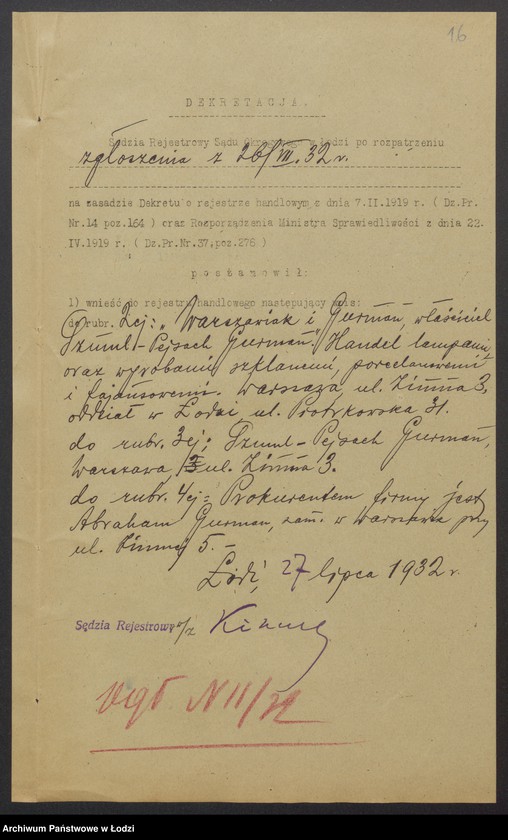 16
DEKRETACJA.
Sędzia Rejestrowy Sądu Okręgowego w Łodzi po rozpatrzeniu
zgłoszenia z 26/VII.32 r.
na zasadzie Dekretu o rejestrze handlowym z dnia 7.II.1919 r. ( Dz.Pr.
Nr.14 poz.164 ) oraz Rozporządzenia Ministra Sprawiedliwości z dnia 22.
IV.1919 r. ( Dz.Pr.Nr.37,poz.276 )
postanowił:
1) wnieść do rejestru handlowego następujący wpis:
do rubr. 2ej: "Warszawiak i Gurman, właściciel
Szmul-Pejsach Gurman". Handel lampami
oraz wyrobami szklanemi, porcelanowemi
i fajansowemi. Warszawa, ul. Zimna 3,
oddział w Łodzi, ul. Piotrkowska 31.
do rubr. 3ej: Szmul-Pejsach Gurman,
Warszawa, ul. Zimna 3.
do rubr. 4ej: Prokurentem firmy jest
Abraham Gurman, zam. w Warszawie przy
ul. Zimnej 5.-
Łódź, 27 lipca 1932 r.
Sędzia Rejestrowy
N 11/32
Archiwum Państwowe w Łodzi